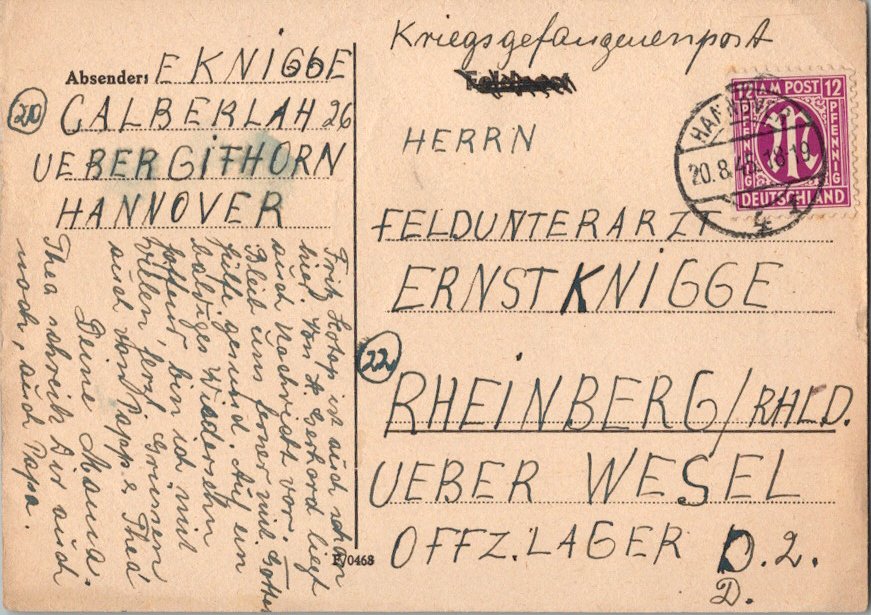 Kriegsgefangenenpost
Absender: E KNIGGE
20
CALBERLAH 26
UEBER GIFHORN
HANNOVER
HERRN
FELDUNTERARZT
ERNST KNIGGE
22
RHEINBERG/RHLD.
UEBER WESEL
OFFZ. LAGER D.2.
D.
12 AM POST 12
PFENNIG PFENNIG
DEUTSCHLAND
HANNOVER
20.8.45.18-19
Fritz ist auch schon
hier, von H. Gerhard liegt
auch Nachricht vor. –
Bleib uns ferner mit Gottes
Hilfe gesund. Auf ein
baldiges Wiedersehn
hoffend, bin ich mit
vielen, herzl. Grüssen
auch von Papa & Thea
Deine Mama.
Thea schreibt Dir auch
noch, auch Papa.
F/0468